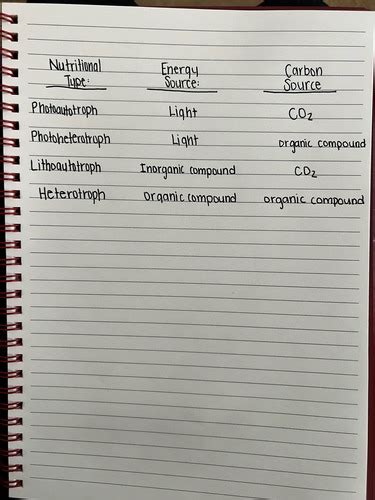 Nutritional Energy Carbon
Type: Source: Source
Photoautotroph Light CO₂
Photoheterotroph Light organic compound
Lithoautotroph Inorganic compound CO₂
Heterotroph organic compound organic compound